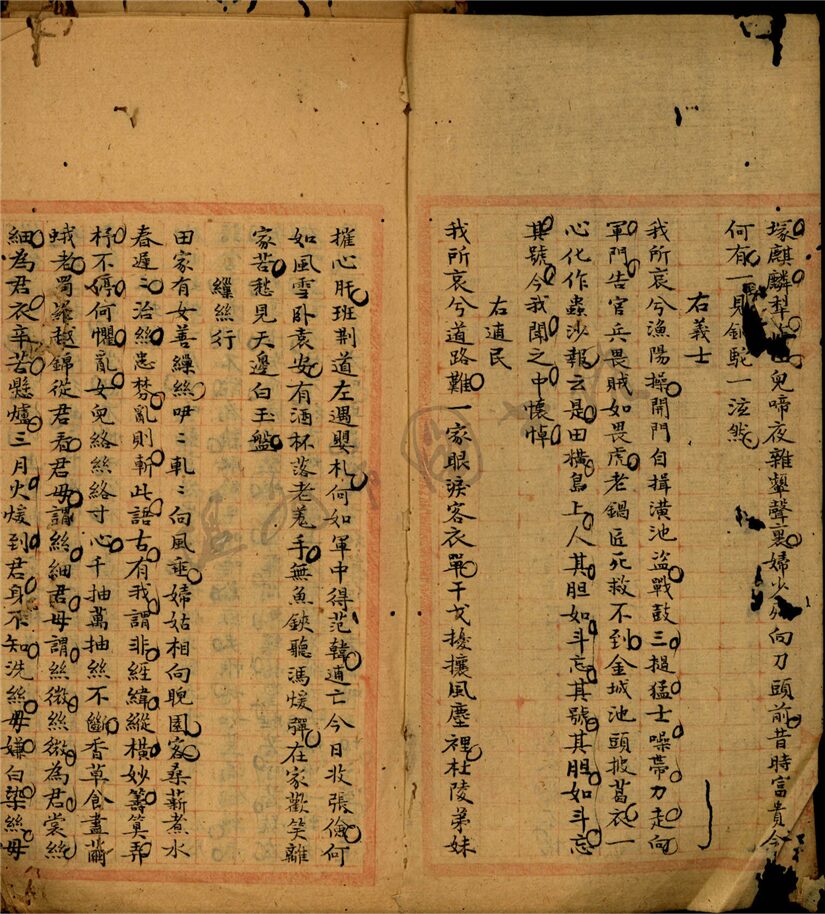 塚麒麟犁兒啼夜雜鼙聲裏婦少向刀頭前昔時富貴今
何有一見銅駝一泫然
右義士
我所哀兮漁陽操開門自揖潢池盜戰鼓三撾猛士噪帶刀走向
軍門告官兵畏賊如畏虎老鍋匠死救不到金城池頭披葛衣一
心化作蟲沙報云是田橫島上人其胆如斗忘其號其胆如斗忘
其號今我聞之中懷悼
右逋民
我所哀兮道路難一家眼淚客衣單干戈擾攘風塵裡杜陵弟妹
摧心肝班荆道左遇嬰札何如軍中得范韓逋亡今日收張儉何
如風雪臥袁安有酒杯落老羌手無魚鋏聽馮煖彈在家歡笑離
家苦愁見天邊白玉盤
繅絲行
田家有女善繅絲咿〻軋〻向風垂婦姑相向睨園客桑薪煮水
春遲〻治絲患棼亂則斬此語古有我謂非經緯縱橫妙籌算弄
杼不停何懼亂女兒絡絲絡寸心千抽萬抽絲不斷香草食盡繭
蛾老蜀羅越錦從君看君毋謂絲細君毋謂絲微絲微為君裳絲
細為君衣辛苦懸爐三月火煖到君身不知洗絲毋嫌白染絲毋